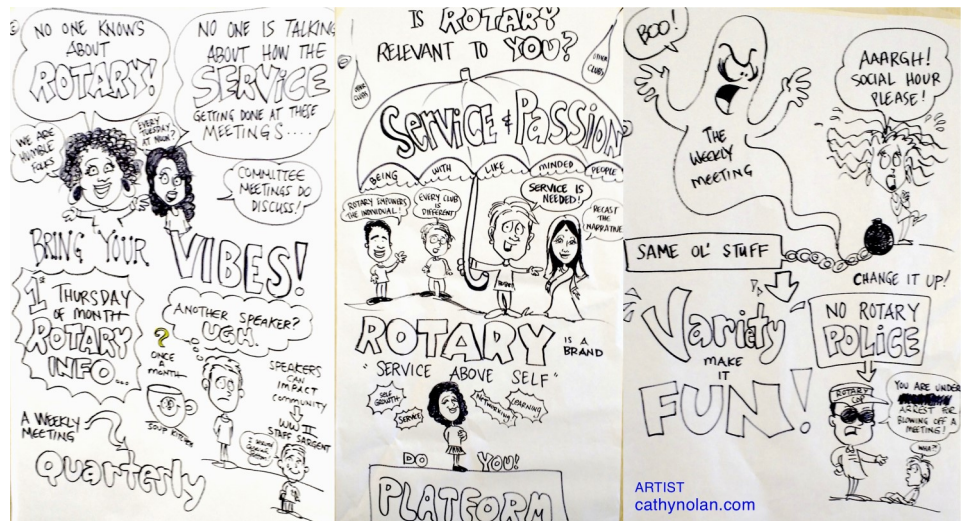 NO ONE KNOWS
ABOUT
ROTARY!
NO ONE IS TALKING
ABOUT HOW THE
SERVICE
GETTING DONE AT THESE
MEETINGS....
WE ARE
HUMBLE
FOLKS
EVERY
TUESDAY
AT NOON?
COMMITTEE
MEETINGS DO
DISCUSS!
BRING YOUR
VIBES!
1ST THURSDAY
OF MONTH
ROTARY
INFO...
ANOTHER SPEAKER?
UGH.
?
ONCE
A
MONTH
SOUP KITCHEN
SPEAKERS
CAN
IMPACT
COMMUNITY
WW II
STAFF SARGENT
A WEEKLY
MEETING
QUARTERLY
IS ROTARY
RELEVANT TO YOU?
OTHER
CLUBS
OTHER
CLUBS
SERVICE & PASSION
BEING WITH LIKE MINDED PEOPLE
ROTARY EMPOWERS
THE INDIVIDUAL!
EVERY CLUB
IS
DIFFERENT
SERVICE IS
NEEDED!
RECAST
THE
NARRATIVE
ROTARY
IS A
BRAND
"SERVICE ABOVE SELF"
SELF
GROWTH
SERVICE
NETWORKING
LEARNING
DO YOU!
PLATFORM
BOO!
THE
WEEKLY
MEETING
AAARGH!
SOCIAL HOUR
PLEASE!
SAME OL' STUFF
CHANGE IT UP!
"VARIETY"
MAKE
IT
FUN!
NO ROTARY
POLICE
ROTARY
COP
YOU ARE UNDER
ARREST FOR
BLOWING OFF A
MEETING!
WHA?!
ARTIST
cathynolan.com